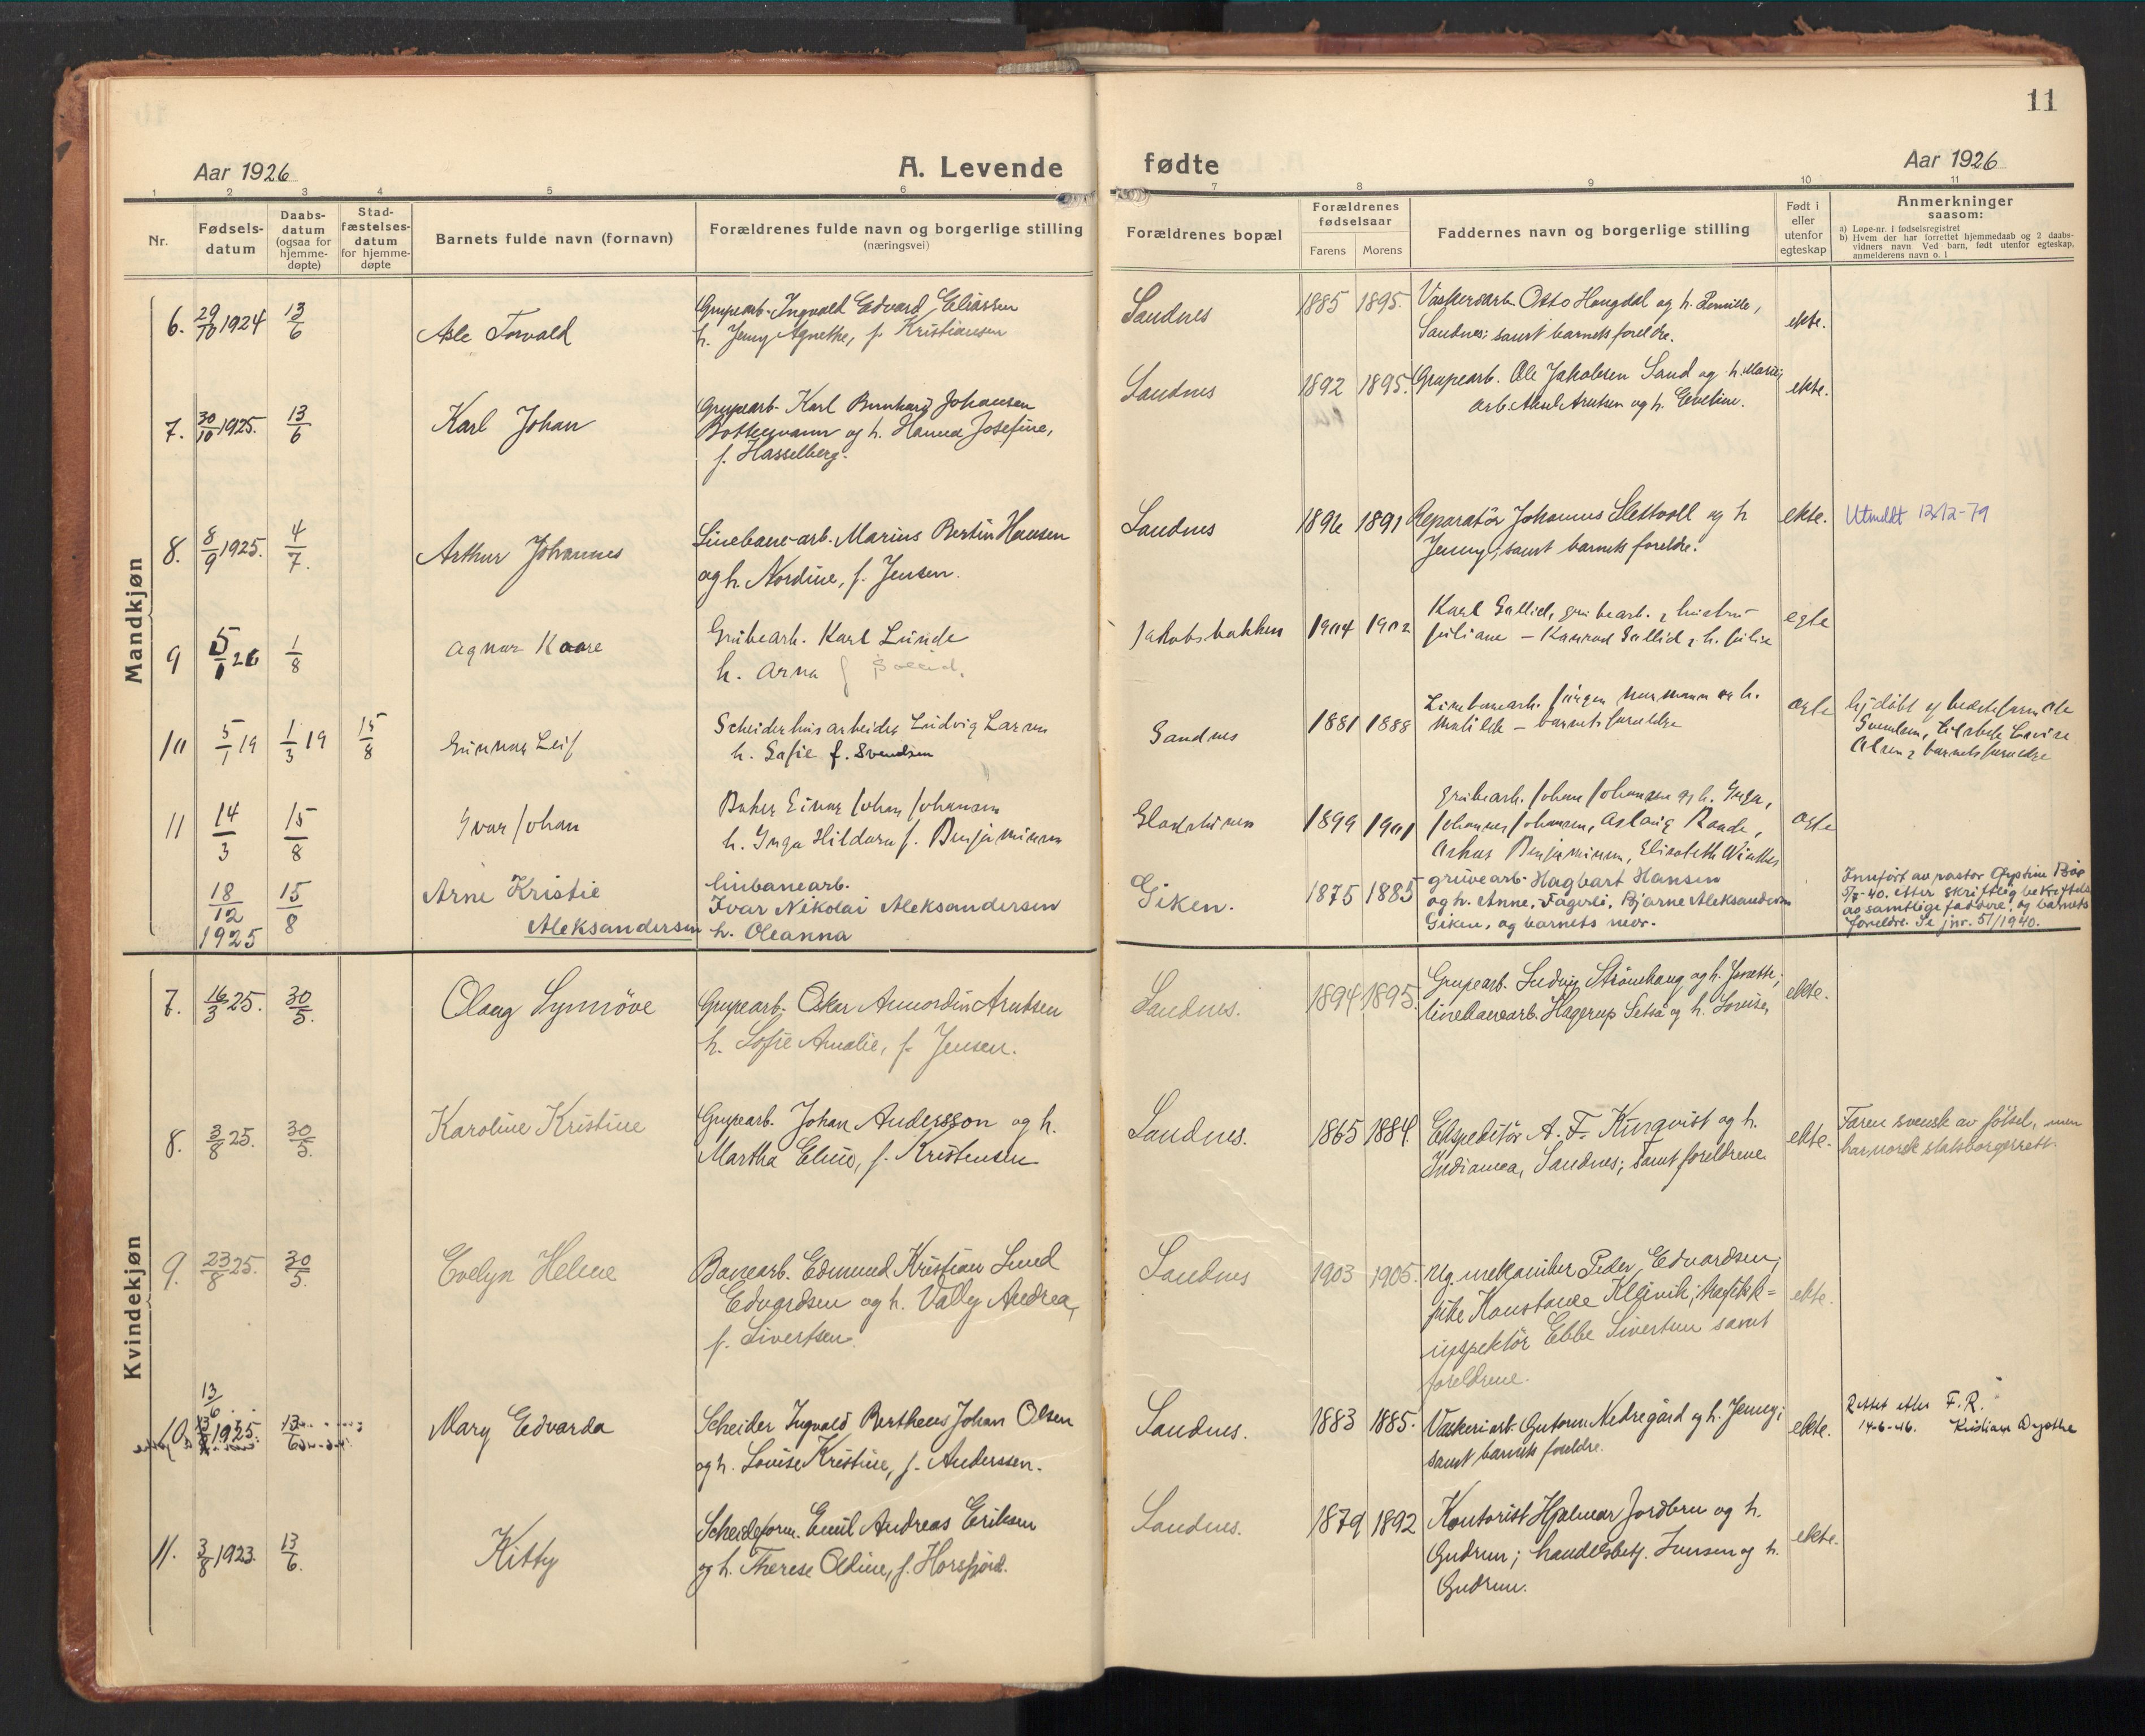 11
Aar 1926
A. Levende
fødte
Aar 1926
1 2 3 4 5 6 7 8 9 10 11
Nr.
Fødsels-
datum
Daabs-
datum
(ogsaa for
hjemme-
døpte)
Stad-
fæstelses-
datum
for hjemme-
døpte
Barnets fulde navn (fornavn)
Forældrenes fulde navn og borgerlige stilling
(næringsvei)
Forældrenes bopæl
Forældrenes
fødselsaar
Farens Morens
Faddernes navn og borgerlige stilling
Født i
eller
utenfor
egteskap
Anmerkninger
saasom:
a) Løpe-nr. i fødselsregistret
b) Hvem der har forrettet hjemmedaab og 2 daabs-
vidners navn Ved barn, født utenfor egteskap,
anmelderens navn o. l
Mandkjøn
6. 29/10 1924 13/6 Asle Torvald
Grupearb. Ingvald Edvard Eliassen
h. Jenny Agnethe, f. Kristiansen
Sandnes 1885 1895.
Vaskeriarb. Otto Haugdal og h.
Sandnes; samt barnets foreldre.
ekte.
7. 30/10 1925. 13/6 Karl Johan
Grupearb. Karl Bernhard Johansen
Bottenvann og h. Hanna Josefine,
f. Hasselberg.
Sandnes 1892 1895.
Grupearb. Ole Jakobsen Sand og h. Marie;
arb. Aksel Arntsen og h. Eveline.
ekte.
8. 8/9 1925. 4/7. Arthur Johannes
Linebane-arb. Marius Bertin Hansen
og h. Nordine, f. Jensen.
Sandnes 1896 1891
Reparatör Johannes Slettvoll og h
Jenny; samt barnets foreldre.
ekte.
Utmeldt 12/12-79
9 5/1 26 1/8 Agnar Kaare
Grubearb. Karl Lunde
h. Arna f. Sollid.
Jakobsbakken 1904 1902
Karl Sollid, grubearb. & hustru
Juliane – Konrad Sollid & h. Julie
egte
10 5/1 19 1/3 19 15/8 Gunnar Leif
Scheidehusarbeider Ludvig Larsen
h. Sofie f. Svendsen
Sandnes 1881 1888
Linebanearb. Jørgen Normann og h.
Matilde – barnets foreldre
egte
hj.døbt af
Svendsen, Elisabeth Lovise
Olsen & barnets foreldre
11 14/3 15/8 Ivar Johan
Baker Einar Johan Johansen
h. Inga Hildora f. Benjaminsen
1899 1901
Grubearb. Johan Johansen og h. Inga,
Johannes Johansen, Aslaug Raade,
Arthur Benjaminsen, Elisabeth Winther
egte
18/12 1925 15/8 Arne Kristie
Aleksandersen
linbanearb.
Ivar Nikolai Aleksandersen
h. Oleanna
Giken. 1875 1885
gruvearb. Hagbart Hansen
og h. Anne, Fagerli, Bjarne Aleksandersen
Giken, og barnets mor.
Innført av pastor Øystein Bö
5/7-40. etter skriftlig bekreftelse
av samtlige faddere, og barnets
foreldre. Se jnr. 51/1940.
Kvindekjøn
7. 16/3 25. 30/5. Olaug Synnöve
Grupearb. Oskar Annordin Arntsen
h. Sofie Amalie, f. Jensen.
Sandnes. 1894 1895.
Grupearb. Ludvig Strömhaug og h. Jonette;
linebanearb. Hagerup Setså og h. Lovise,
ekte.
8. 3/8 25. 30/5. Karoline Kristine
Grupearb. Johan Andersson og h.
Martha Elino, f. Kristensen
Sandnes. 1865 1884.
Ekspeditör A. F. Kinqvist og h.
Indianna, Sandnes; samt foreldrene
ekte.
Faren svensk av fötsel, men
har norsk statsborgerrett.
9. 23/8 25. 30/5. Evelyn Helene
Banearb. Edmund Kristian Lund
Edvardsen og h. Vally Andrea,
f. Sivertsen.
Sandnes 1903 1905.
Ug. mekaniker Peder Edvardsen;
pike Konstanse Kleivik; trafikk-
inspektör Ebbe Sivertsen samt
foreldrene.
ekte.
10. 13/6 1925. 13/6 Mary Edvarda
Scheider Ingvald Bertheus Johan Olsen
og h. Lovise Kristine, f. Anderssen.
Sandnes. 1883 1885.
Vaskeriarb. Guttorm Nedregård og h. Jenny;
samt barnets foreldre.
ekte.
Rettet etter F.R.
14-6-46. Kristian Dypthe
11. 3/8 1923. 13/6. Kitty
Scheideform. Emil Andreas Eriksen
og h. Therese Oldine, f. Horsfjord.
Sandnes. 1879 1892
Kontorist Hjalmar Jordbru og h.
Gudrun; handelsbetj. Iversen og h.
Gudrun.
ekte.